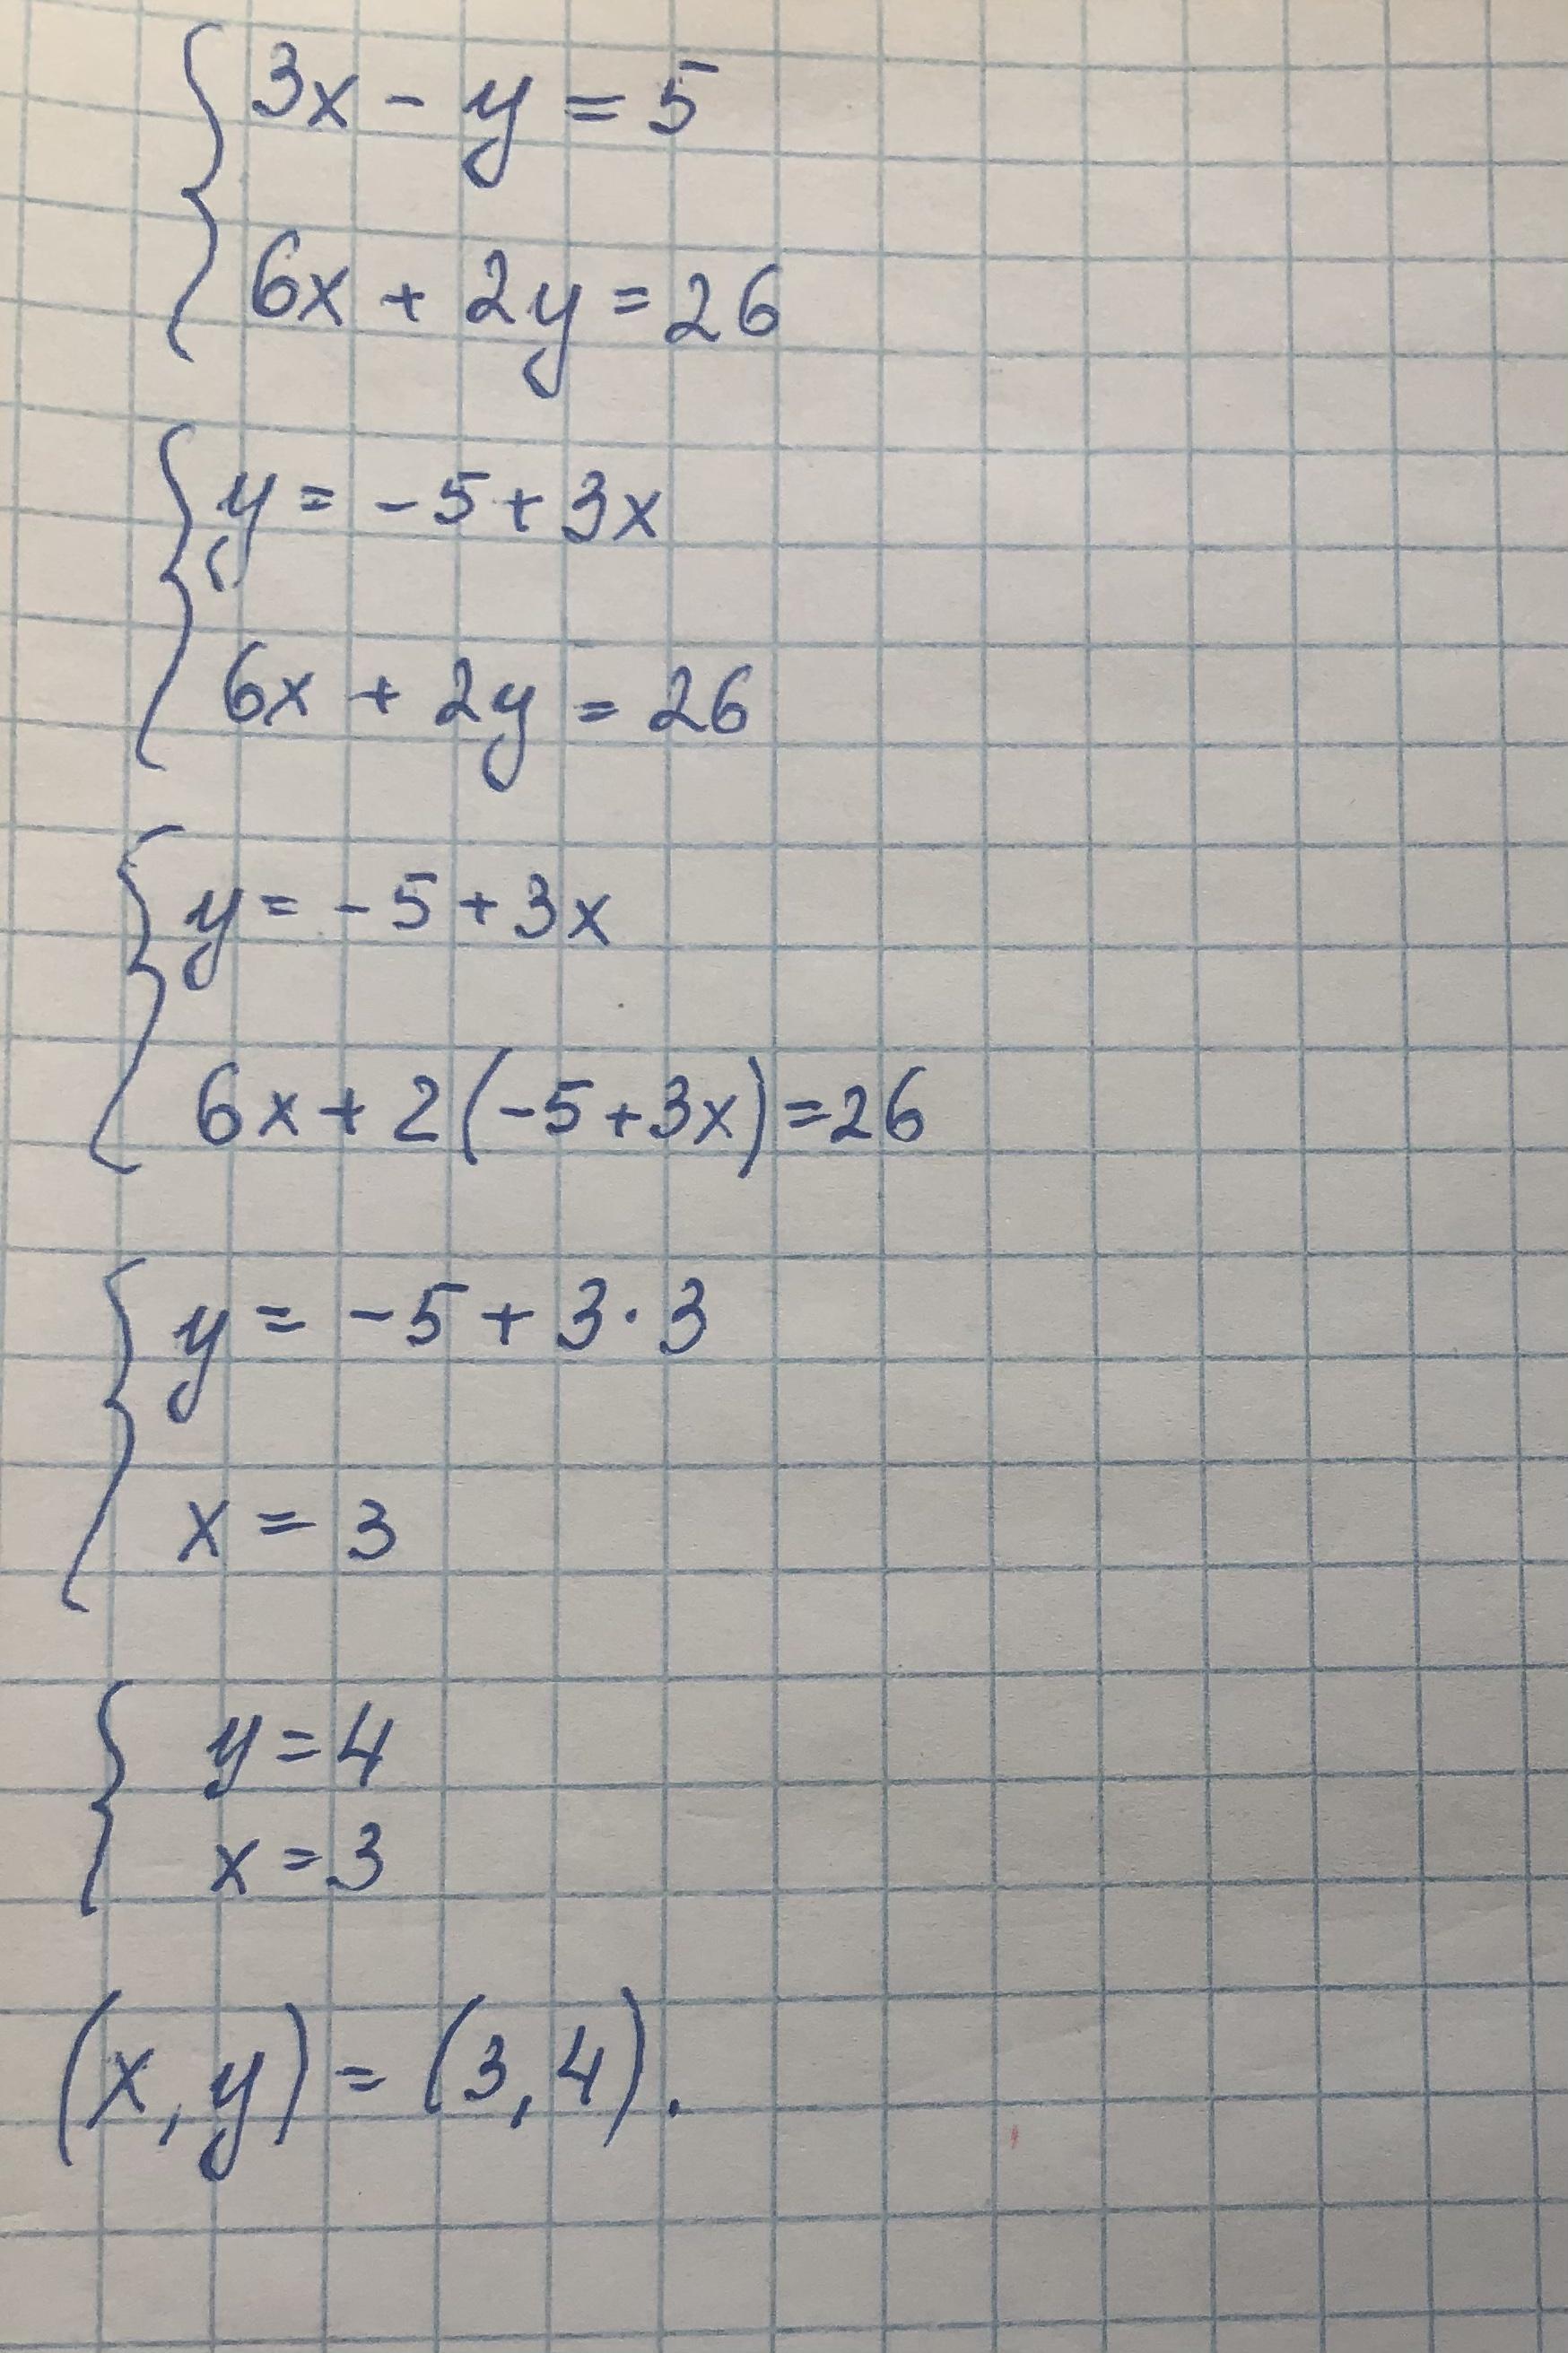 3x - y = 5
6x + 2y = 26
y = -5 + 3x
6x + 2y = 26
y = -5 + 3x
6x + 2(-5+3x) = 26
y = -5 + 3·3
x = 3
y = 4
x = 3
(x, y) = (3, 4).